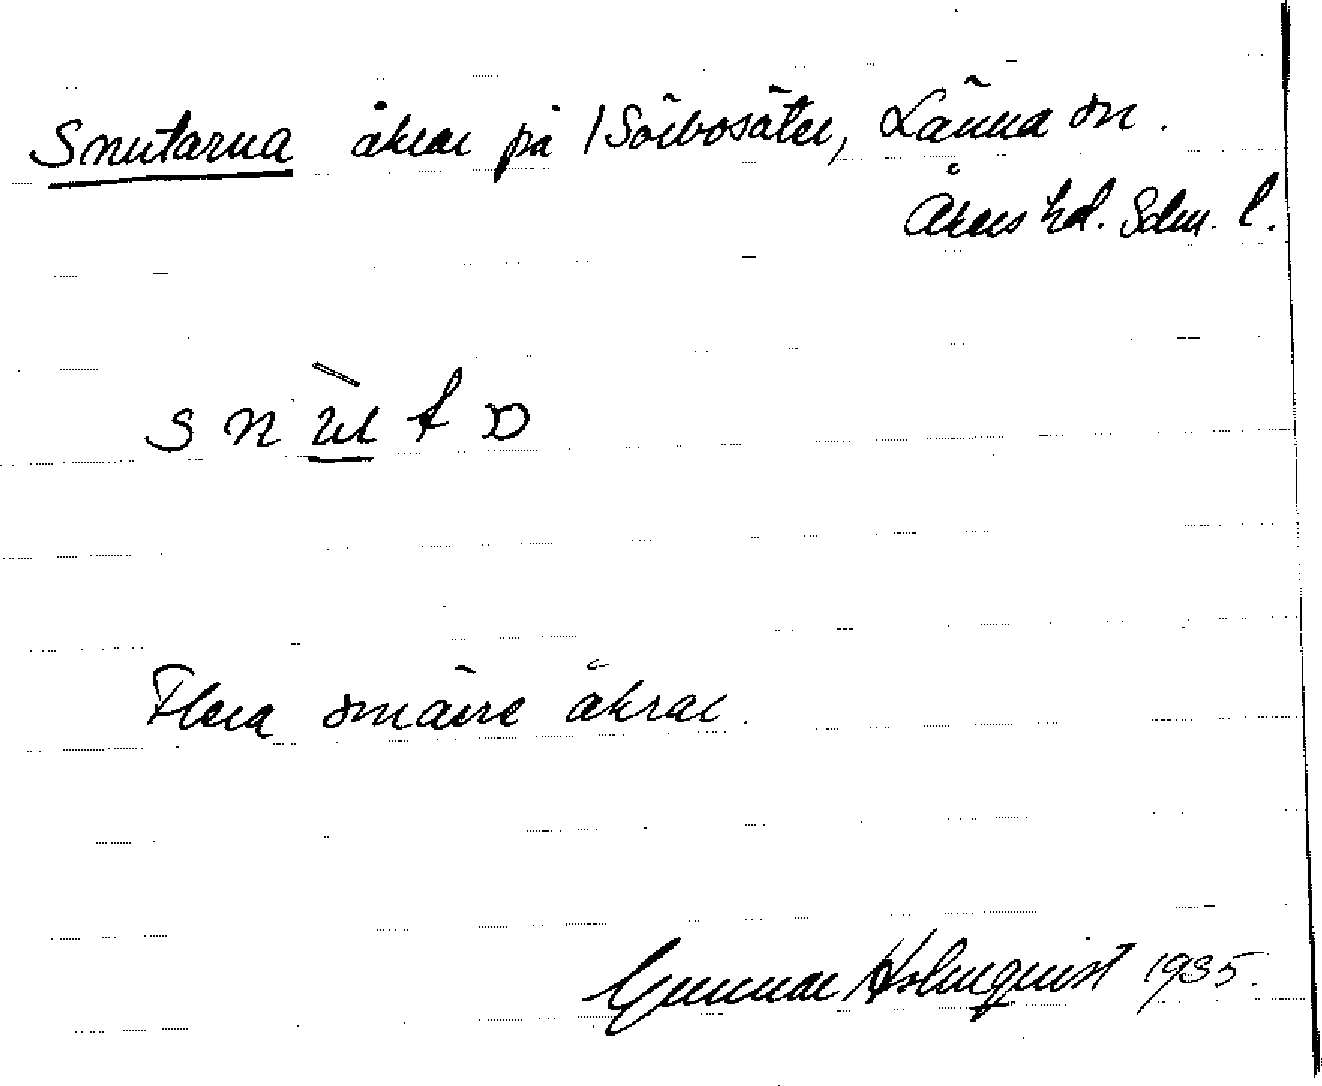 Snutarna åkrar på 1 Sörbosäter, Länna sn.
Åkers hd. Sdm. l.
s n u t
Flera smärre åkrar.
Gunnar Holmquist 1935.